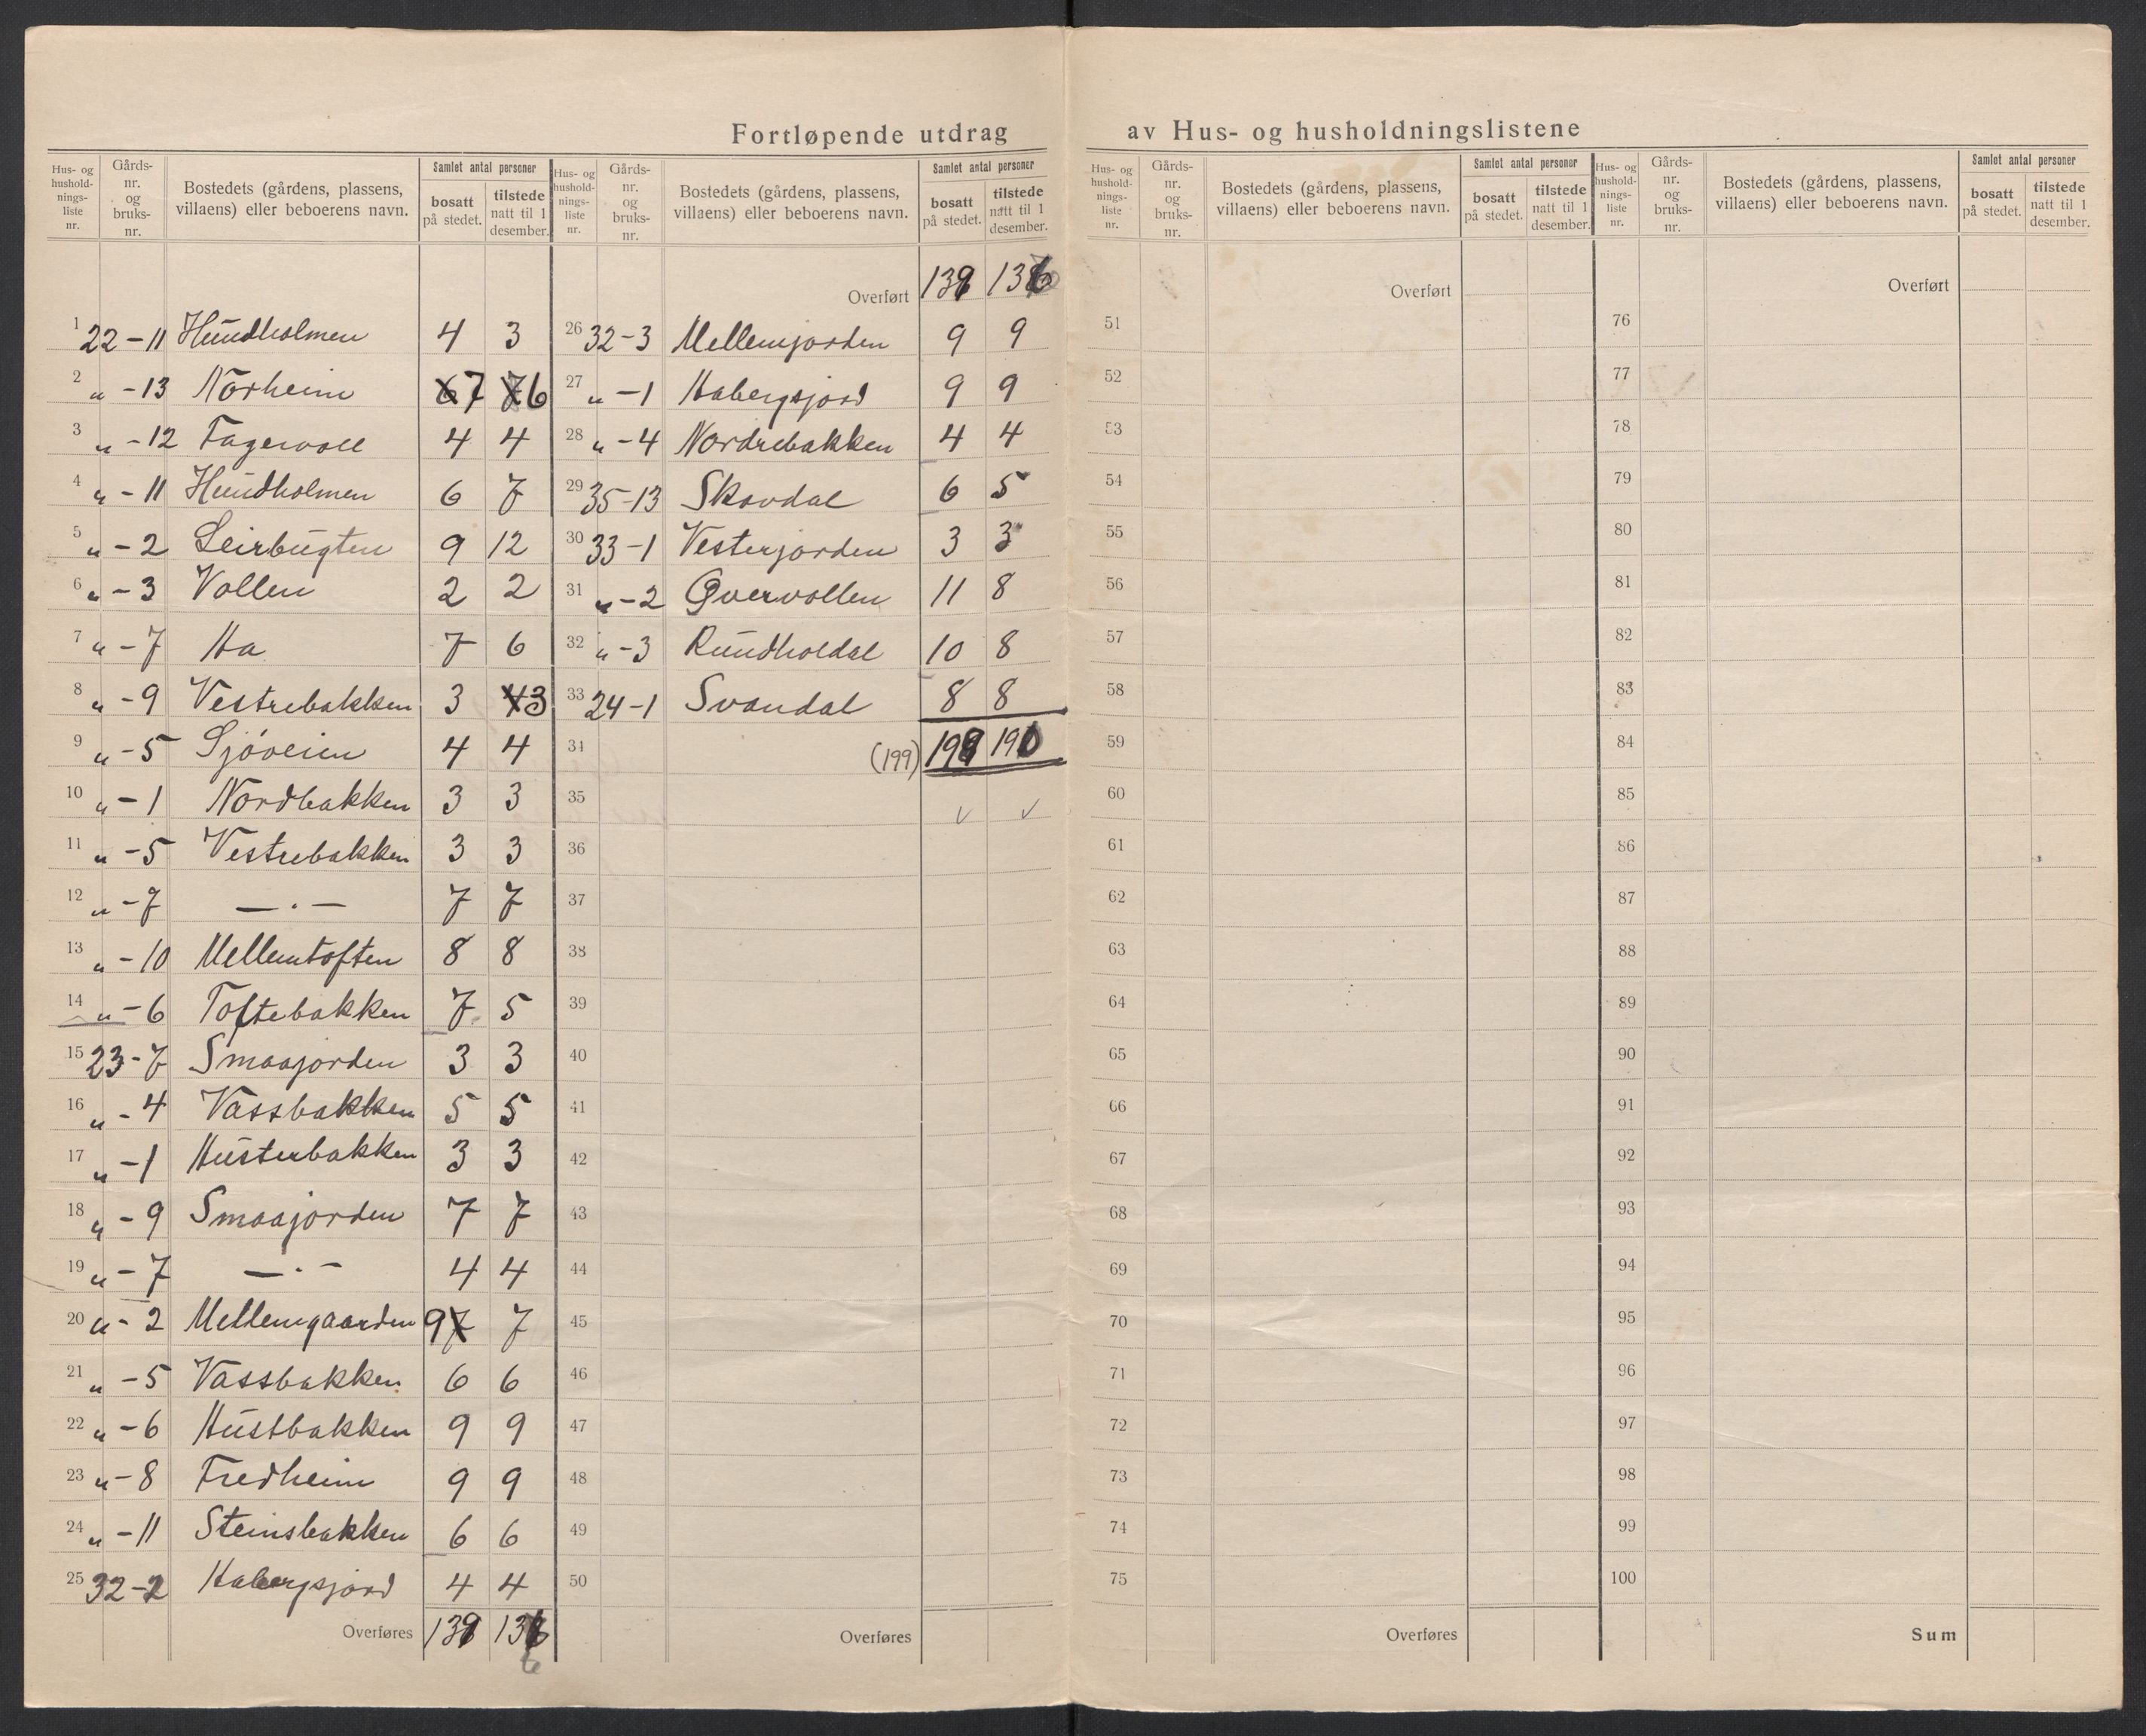 Fortløpende utdrag av Hus- og husholdningslistene
Hus- og hushold- nings- liste nr. Gårds- nr. og bruks- nr. Bostedets (gårdens, plassens, villaens) eller beboerens navn. Samlet antal personer bosatt på stedet. tilstede natt til 1 desember.
1 22-11 Hundholmen 4 3
2 " -13 Norheim 6 7 7 6
3 " -12 Fagervoll 4 4
4 " -11 Hundholmen 6 7
5 " -2 Leirbugten 9 12
6 " -3 Vollen 2 2
7 " -7 Ha 7 6
8 " -9 Vestrebakken 3 4 3
9 " -5 Sjöveien 4 4
10 " -1 Nordbakken 3 3
11 " -5 Vestrebakken 3 3
12 " -7 —·— 7 7
13 " -10 Mellemtoften 8 8
14 " -6 Toftebakken 7 5
15 23-7 Smaajorden 3 3
16 " -4 Vassbakken 5 5
17 " -1 Husterbakken 3 3
18 " -9 Smaajorden 7 7
19 " -7 —·— 4 4
20 " -2 Mellemgaarden 9 7 7
21 " -5 Vassbakken 6 6
22 " -6 Hustbakken 9 9
23 " -8 Fredheim 9 9
24 " -11 Steinsbakken 6 6
25 32-2 Habergsjord 4 4
Overføres 139 136
6
Hus- og hushold- nings- liste nr. Gårds- nr. og bruks- nr. Bostedets (gårdens, plassens, villaens) eller beboerens navn. Samlet antal personer bosatt på stedet. tilstede natt til 1 desember.
Overført 139 136
26 32-3 Mellemjorden 9 9
27 " -1 Habergsjord 9 9
28 " -4 Nordrebakken 4 4
29 35-13 Skovdal 6 5
30 33-1 Vesterjorden 3 3
31 " -2 Øvervollen 11 8
32 " -3 Rundholdal 10 8
33 24-1 Svandal 8 8
34 (199) 199 190
35 ✓ ✓
36
37
38
39
40
41
42
43
44
45
46
47
48
49
50
Overføres
Hus- og hushold- nings- liste nr. Gårds- nr. og bruks- nr. Bostedets (gårdens, plassens, villaens) eller beboerens navn. Samlet antal personer bosatt på stedet. tilstede natt til 1 desember.
Overført
51
52
53
54
55
56
57
58
59
60
61
62
63
64
65
66
67
68
69
70
71
72
73
74
75
Overføres
Hus- og hushold- nings- liste nr. Gårds- nr. og bruks- nr. Bostedets (gårdens, plassens, villaens) eller beboerens navn. Samlet antal personer bosatt på stedet. tilstede natt til 1 desember.
Overført
76
77
78
79
80
81
82
83
84
85
86
87
88
89
90
91
92
93
94
95
96
97
98
99
100
Sum